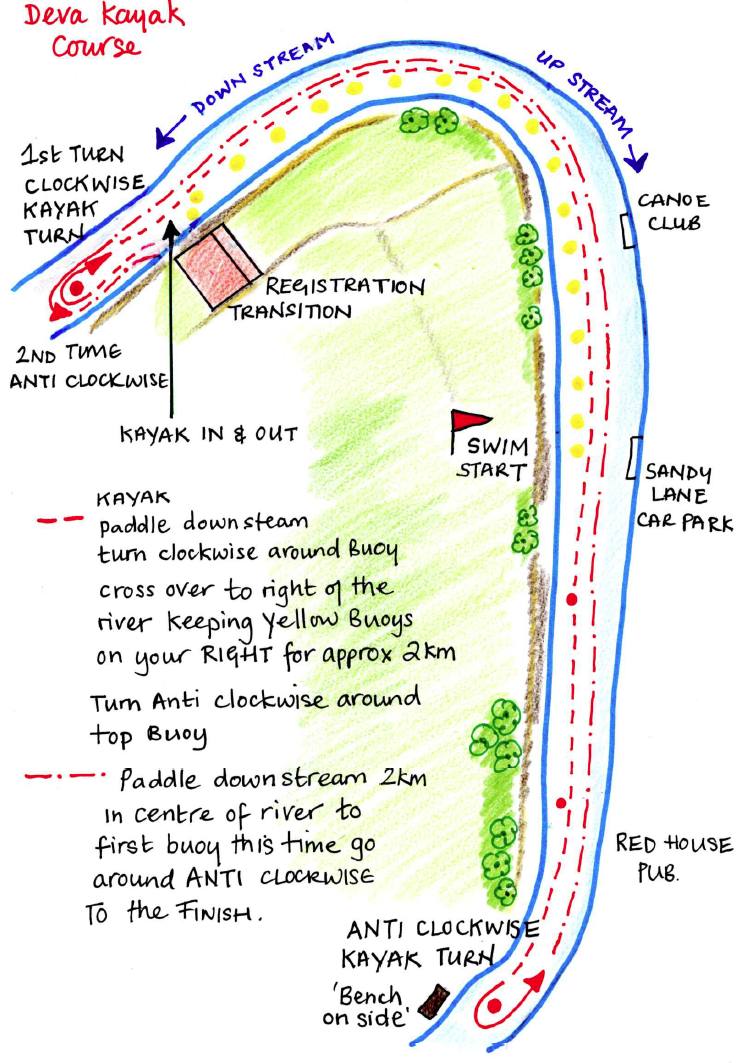 Deva Kayak
Course
DOWN STREAM
UP STREAM
1st TURN
CLOCKWISE
KAYAK
TURN
CANOE
CLUB
REGISTRATION
TRANSITION
2ND TIME
ANTI CLOCKWISE
KAYAK IN & OUT
SWIM
START
SANDY
LANE
CAR PARK
KAYAK
paddle down steam
turn clockwise around Buoy
cross over to right of the
river keeping Yellow Buoys
on your RIGHT for approx 2km
Turn Anti clockwise around
top Buoy
Paddle down stream 2km
in centre of river to
first buoy this time go
around ANTI CLOCKWISE
To the FINISH.
RED HOUSE
PUB.
ANTI CLOCKWISE
KAYAK TURN
'Bench
on side'